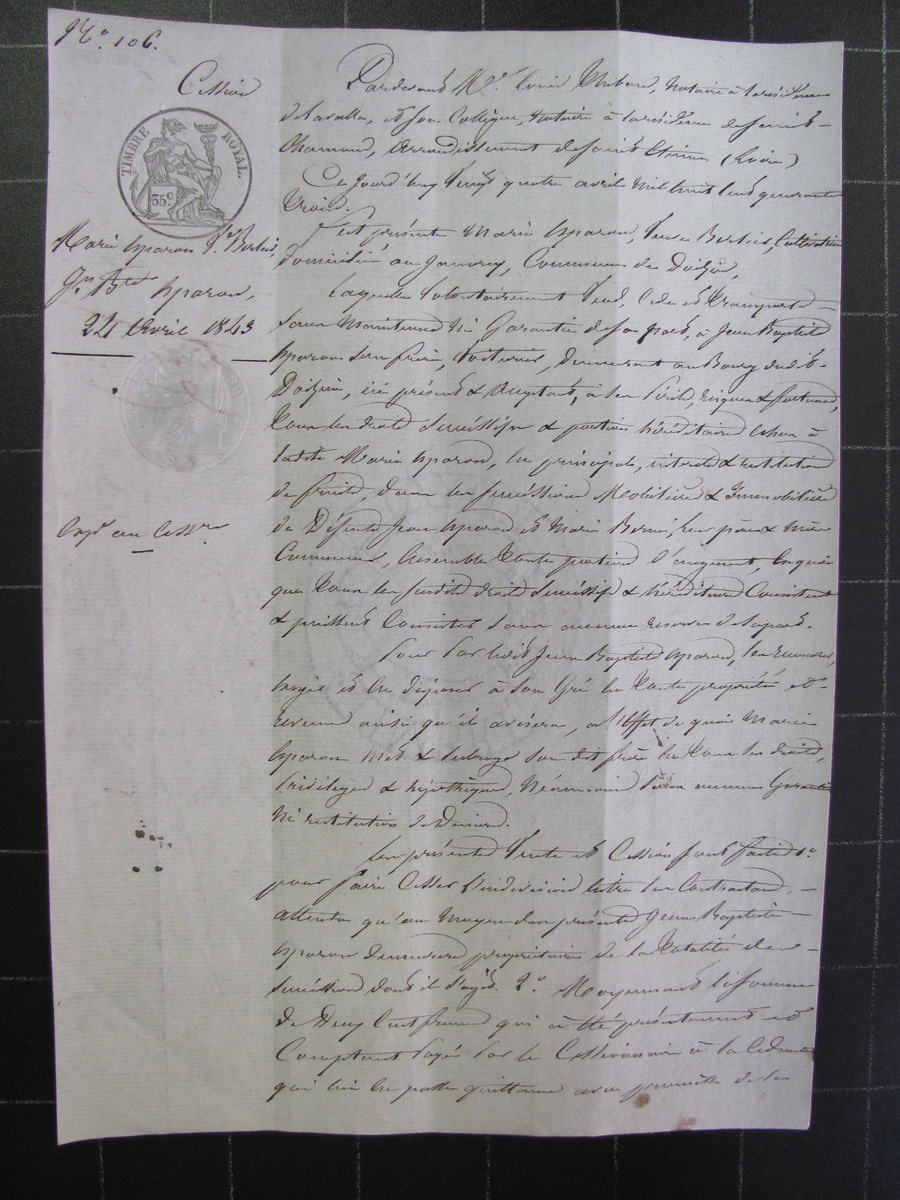 N.o 106.
Cession
TIMBRE ROYAL.
35c
Marie Aparon V.e Bertier,
Jn Bte Aparon,
24 Avril 1843
Expn au Cessre
Pardevant Me Louis, Notaire à la résidence
de Lavalla, et son Collègue, Notaire à la résidence de Saint-
Chamond, arrondissement de Saint Etienne (Loire)
Ce jourd'huy vingt quatre avril mil huit cent quarante
trois.
S'est présentée Marie Aparon, veuve Bertier, Cultivatrice
domiciliée au, Commune de Doizieu,
Laquelle volontairement vend, cède et transporte
sans maintenue ni garantie de sa part, à Jean Baptiste
Aparon son frère, voiturier, demeurant au Bourg dudit
Doizieu, ici présent & acceptant, à ses périls, risques & fortunes,
tous les droits successifs & portion héréditaire échus à
ladite Marie Aparon, en principal, intérêts & restitution
de fruits, dans les successions mobilière & immobilière
de Défunts Jean Aparon et Marie, leurs père & mère
communs, ensemble toute portion d'augment,
que tous les susdits droits successifs & héréditaires consistent
& puissent consister sans aucune réserve de sa part.
Pour par ledit Jean Baptiste Aparon,
et en disposer à son gré en toute propriété et
revenu ainsi qu'il avisera, à l'effet de quoi Marie
Aparon met & subroge son dit frère en tous ses droits,
privilèges & hypothèques, néanmoins sans aucune garantie
ni restitution de deniers.
Les présentes vente et cession sont faites 1.o
pour faire cesser l'indivision entre les contractans,
attendu qu'au moyen des présentes Jean Baptiste
Aparon demeure propriétaire de la totalité des
successions dont il s'agit. 2.o Moyennant la somme
de deux cents francs qui a été présentement et
comptant payée par le cessionnaire à la cédante
qui lui en passe quittance avec promesse de la